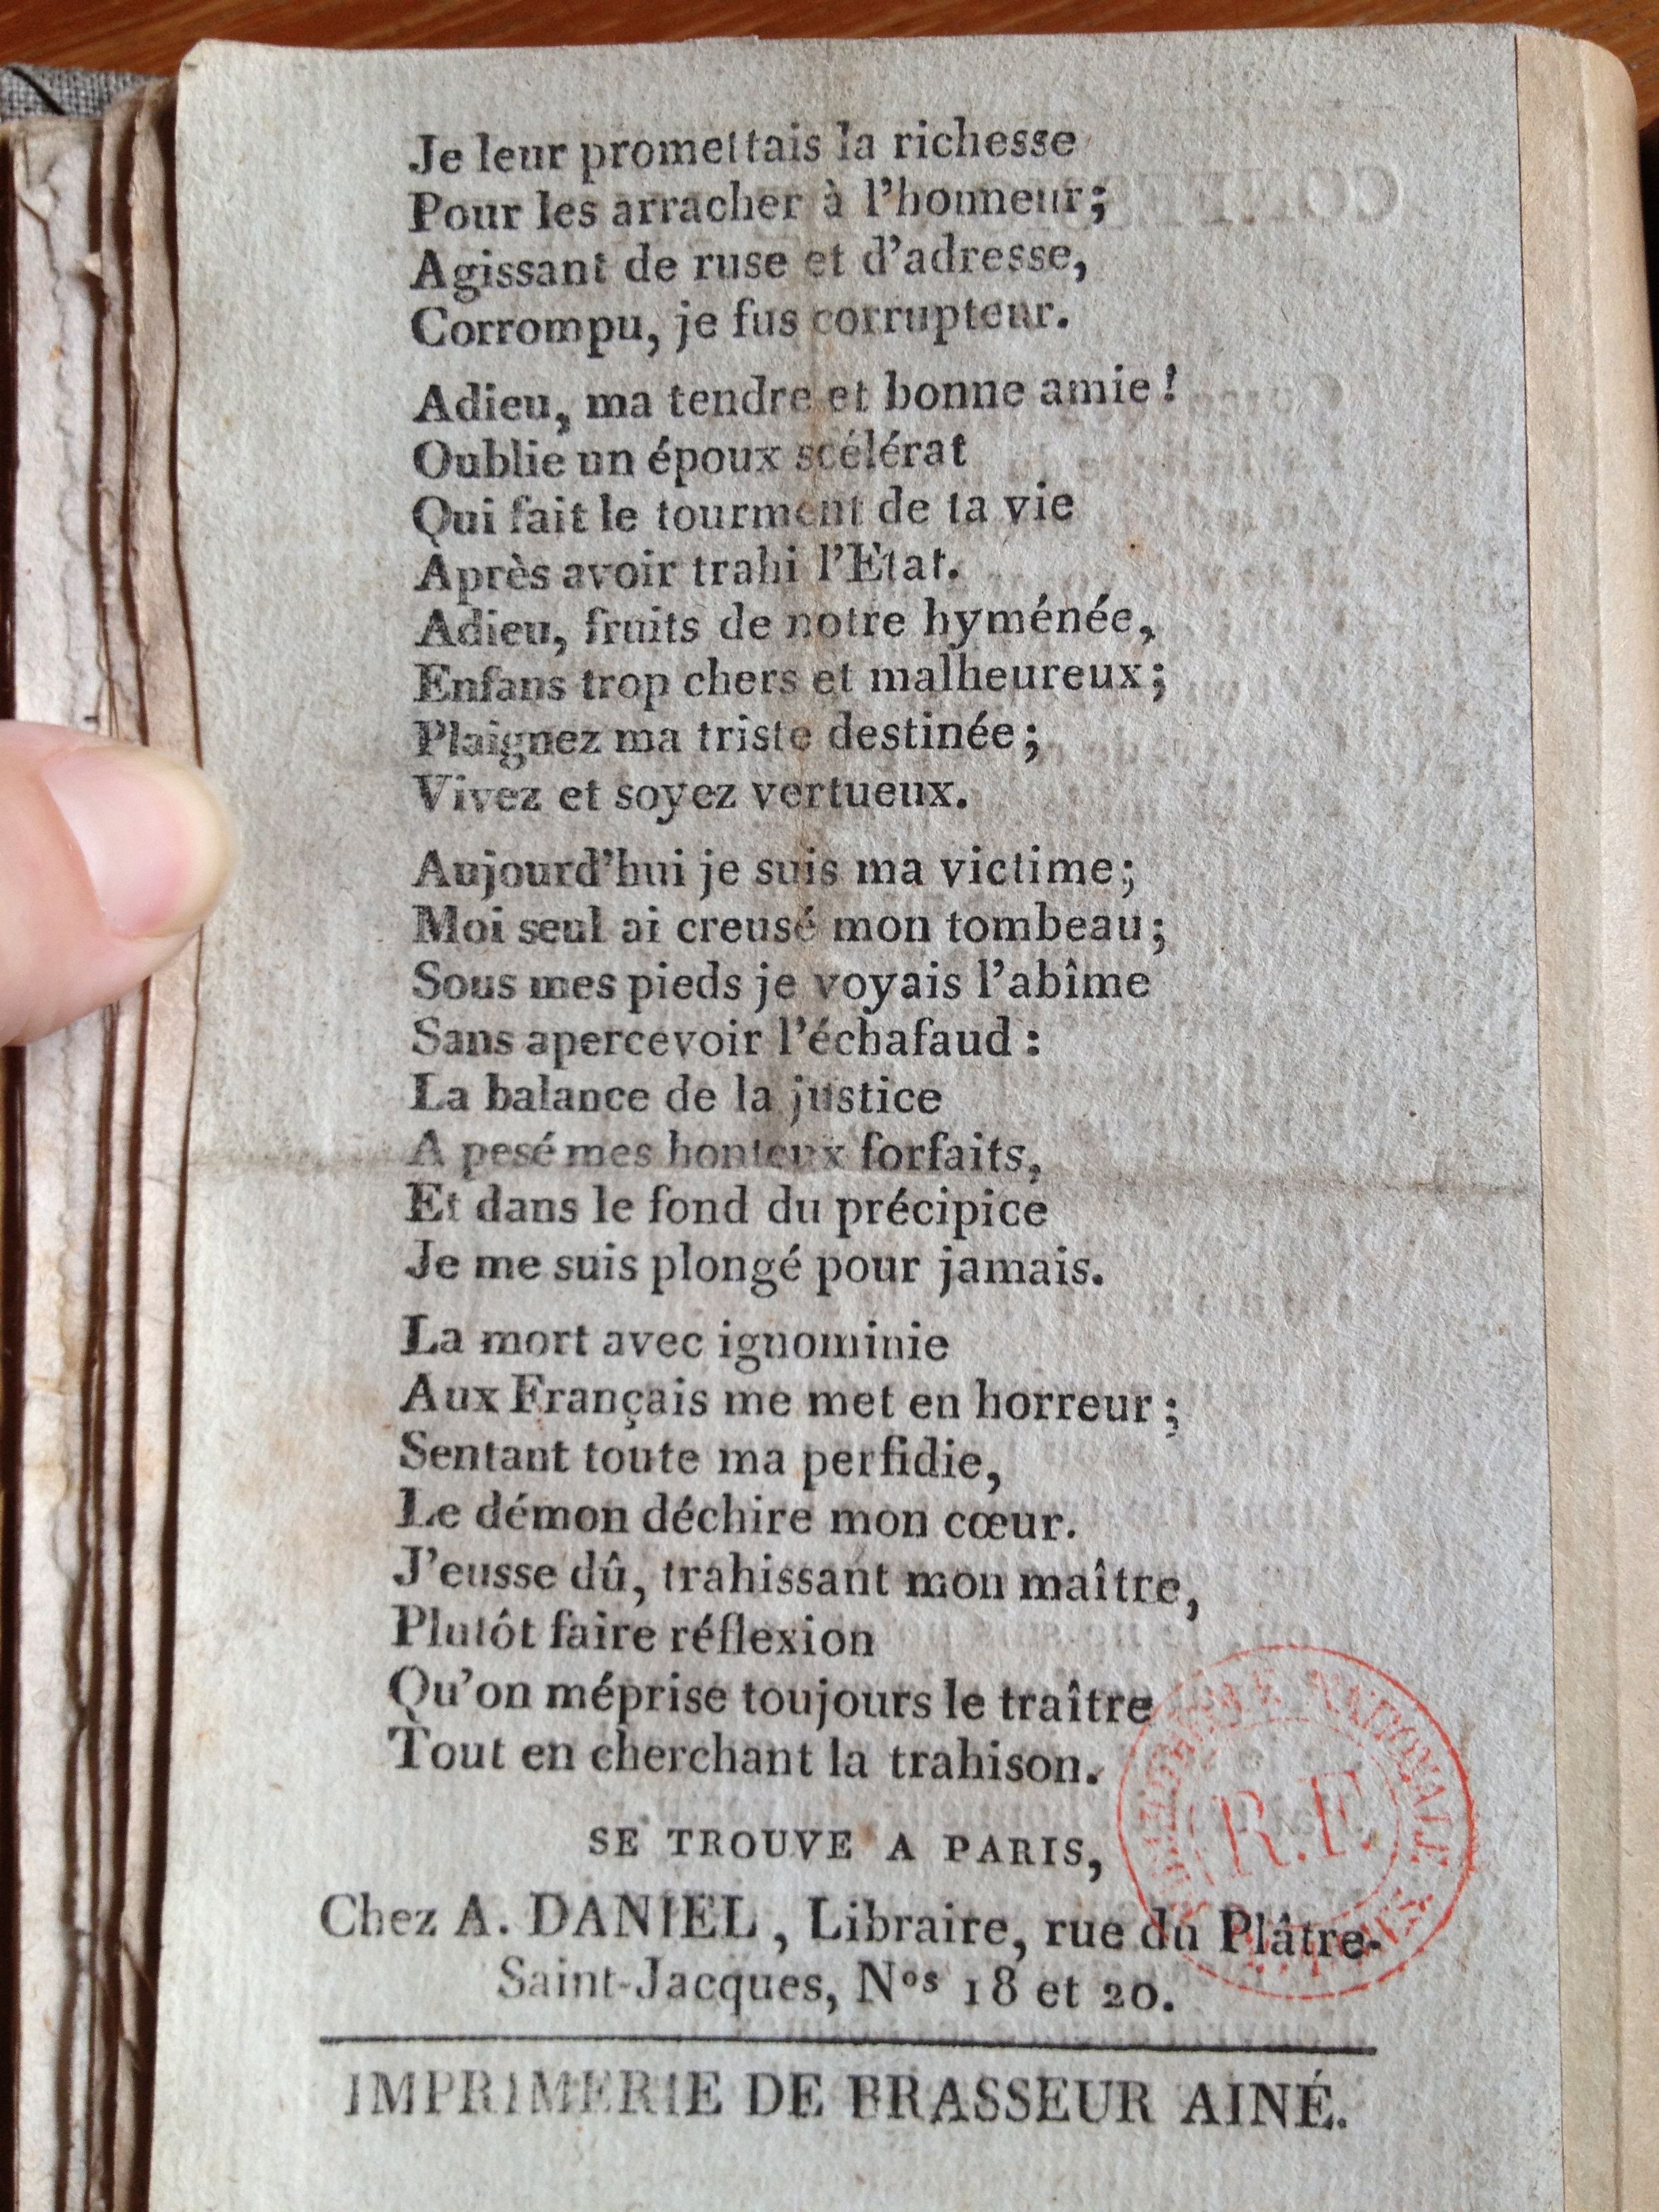 Je leur promettais la richesse
Pour les arracher à l'honneur;
Agissant de ruse et d'adresse,
Corrompu, je fus corrupteur.
Adieu, ma tendre et bonne amie!
Oublie un époux scélérat
Qui fait le tourment de ta vie
Après avoir trahi l'Etat.
Adieu, fruits de notre hyménée,
Enfans trop chers et malheureux;
Plaignez ma triste destinée;
Vivez et soyez vertueux.
Aujourd'hui je suis ma victime;
Moi seul ai creusé mon tombeau;
Sous mes pieds je voyais l'abîme
Sans apercevoir l'échafaud :
La balance de la justice
A pesé mes honteux forfaits,
Et dans le fond du précipice
Je me suis plongé pour jamais.
La mort avec ignominie
Aux Français me met en horreur;
Sentant toute ma perfidie,
Le démon déchire mon cœur.
J'eusse dû, trahissant mon maître,
Plutôt faire réflexion
Qu'on méprise toujours le traître
Tout en cherchant la trahison.
SE TROUVE A PARIS,
Chez A. DANIEL, Libraire, rue du Plâtre-
Saint-Jacques, Nos 18 et 20.
IMPRIMERIE DE BRASSEUR AINÉ.
NATIONALE
R.F.